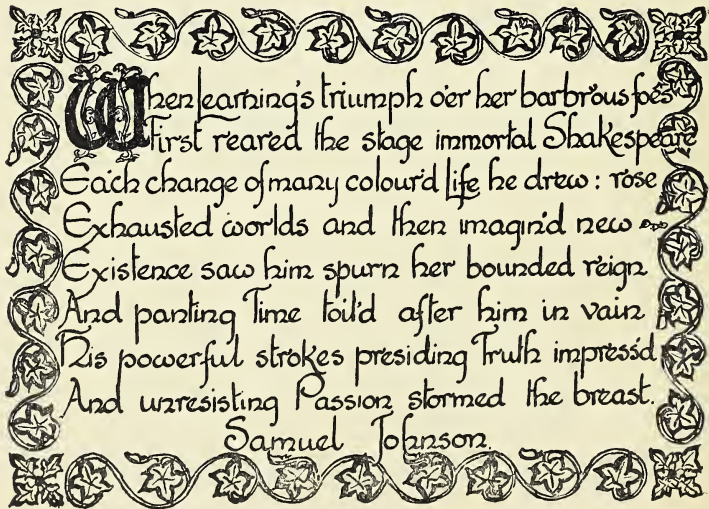 When Learning's triumph o'er her barb'rous foes
First reared the stage immortal Shakespeare
Each change of many colour'd life he drew : rose
Exhausted worlds and then imagin'd new
Existence saw him spurn her bounded reign
And panting Time toil'd after him in vain
His powerful strokes presiding Truth impress'd
And unresisting Passion stormed the breast.
Samuel Johnson.